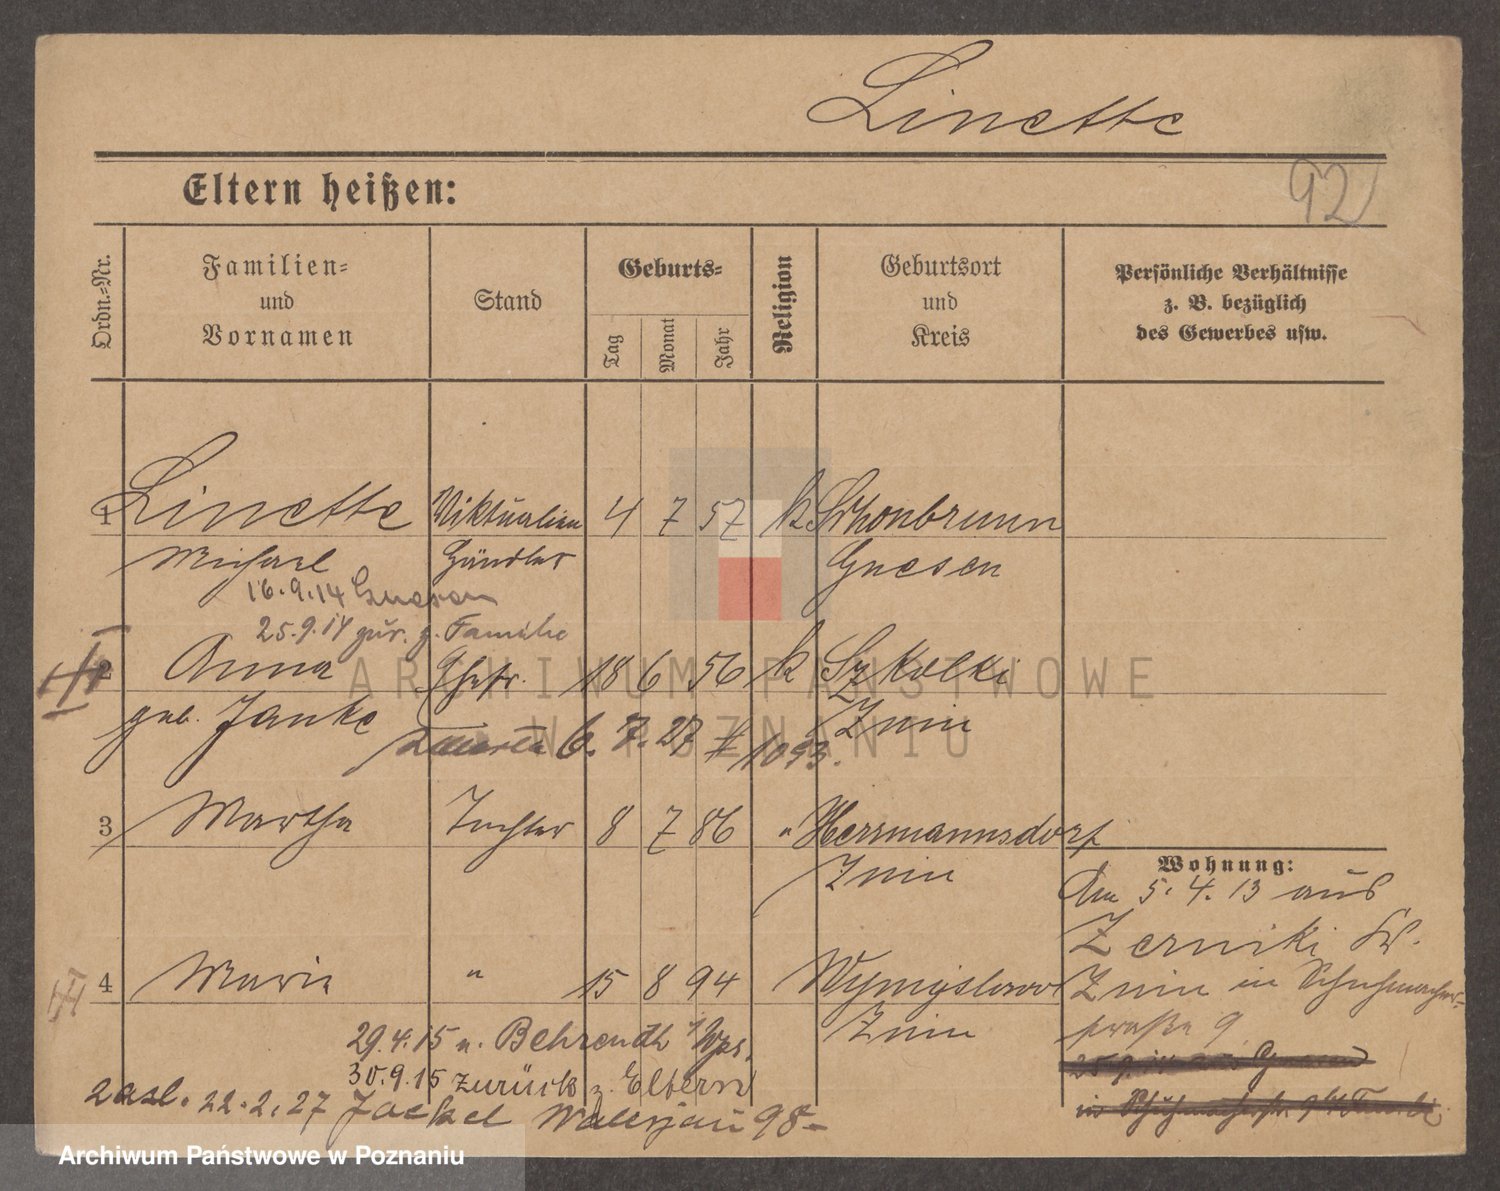 Linette
92
Eltern heißen:
Ordn.-Nr.
Familien-
und
Vornamen
Stand
Geburts-
Tag
Monat
Jahr
Religion
Geburtsort
und
Kreis
Persönliche Verhältnisse
z. B. bezüglich
des Gewerbes usw.
1 Linette Viktualien 4 7 57 k Schonbrunn
Michael Händler Gnesen
16.9.14 Gnesen
25.9.14 zur. z. Familie
2 Anna Ehefr. 18 6 56 k Szkolki
geb. Janke Znin
zmarła 6. 7. 27 # 1093.
3 Martha Tochter 8 7 86 " Herrmannsdorf
Znin
4 Marie " 15 8 94 Wymyslowo
Znin
29.4.15 n. Behrendt Wpr.
30.9.15 zurück z. Eltern
zasl. 22.2.27 Jackel Waleryan 98-
Wohnung:
Am 5.4.13 aus
Zerniki Kr.
Znin in Schuhmacher-
straße 9
25.9.14 aus Gnesen
in Schuhmacherstr. 9 Familie
ARCHIWUM PAŃSTWOWE
W POZNANIU
Archiwum Państwowe w Poznaniu